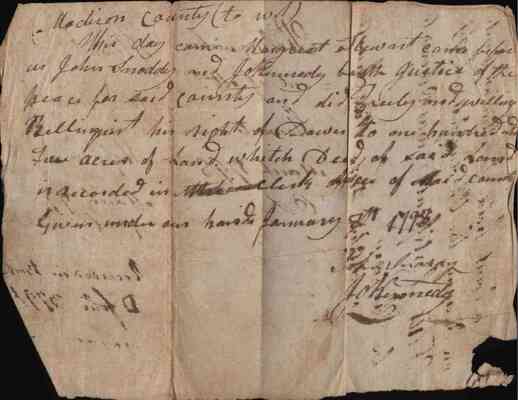 Madison County (to wit)
This day came Margaret Stewart came before
us John Snoddy and Jo Kennedy both Justice of the
peace for said county and did freely and willing
Rellinquist her right of Dower to one hundred and
acres of Land which Deed of said Land
is recorded in Clerk office of said county
Given under our hands January 8th 1798
John Snoddy
Jo Kennedy